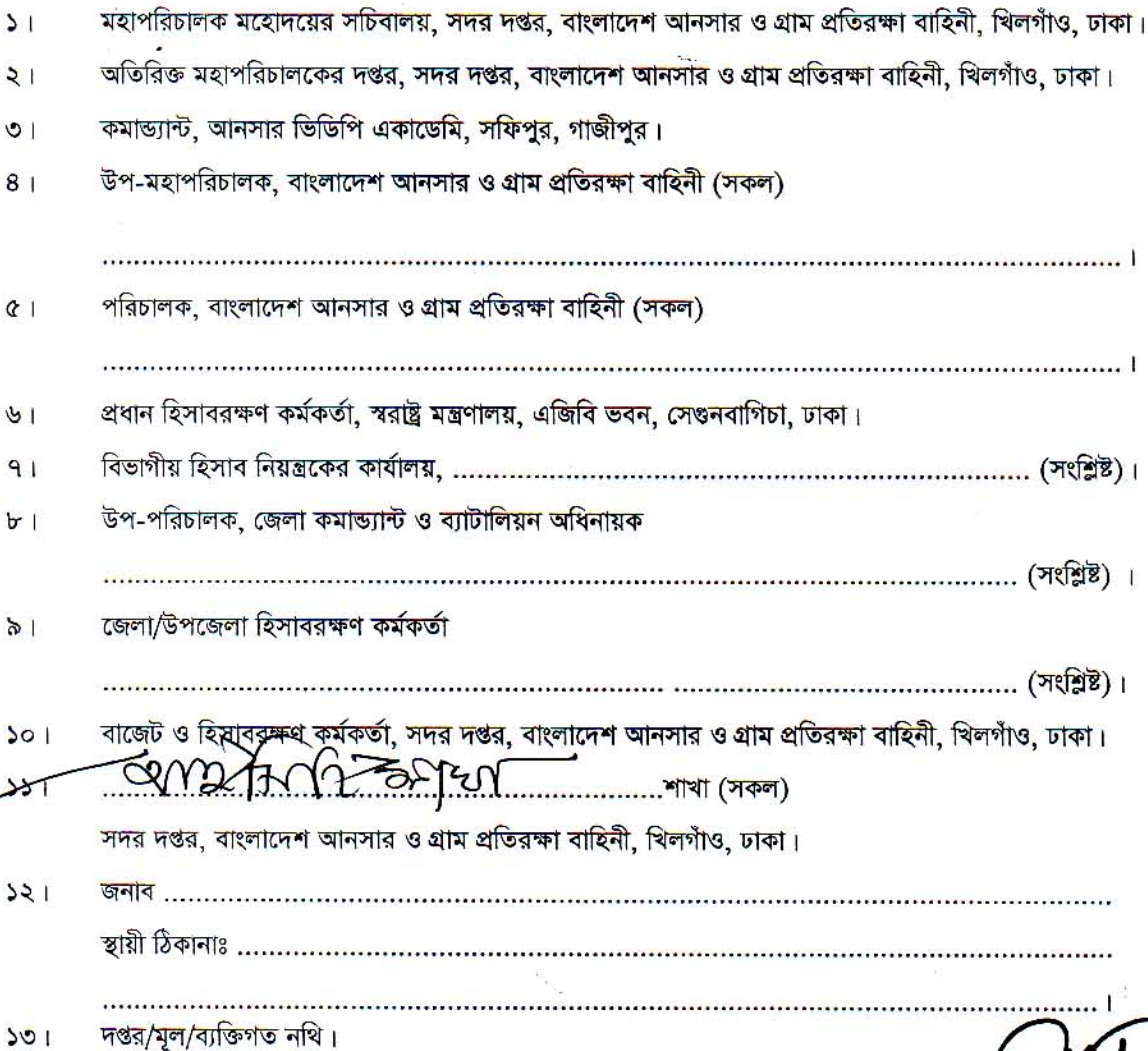 ১। মহাপরিচালক মহোদয়ের সচিবালয়, সদর দপ্তর, বাংলাদেশ আনসার ও গ্রাম প্রতিরক্ষা বাহিনী, খিলগাঁও, ঢাকা।
২। অতিরিক্ত মহাপরিচালকের দপ্তর, সদর দপ্তর, বাংলাদেশ আনসার ও গ্রাম প্রতিরক্ষা বাহিনী, খিলগাঁও, ঢাকা।
৩। কমান্ড্যান্ট, আনসার ভিডিপি একাডেমি, সফিপুর, গাজীপুর।
৪। উপ-মহাপরিচালক, বাংলাদেশ আনসার ও গ্রাম প্রতিরক্ষা বাহিনী (সকল)
.................................................।
৫। পরিচালক, বাংলাদেশ আনসার ও গ্রাম প্রতিরক্ষা বাহিনী (সকল)
.................................................।
৬। প্রধান হিসাবরক্ষণ কর্মকর্তা, স্বরাষ্ট্র মন্ত্রণালয়, এজিবি ভবন, সেগুনবাগিচা, ঢাকা।
৭। বিভাগীয় হিসাব নিয়ন্ত্রকের কার্যালয়, ................................. (সংশ্লিষ্ট)।
৮। উপ-পরিচালক, জেলা কমান্ড্যান্ট ও ব্যাটালিয়ন অধিনায়ক
................................................. (সংশ্লিষ্ট) ।
৯। জেলা/উপজেলা হিসাবরক্ষণ কর্মকর্তা
................................................. (সংশ্লিষ্ট)।
১০। বাজেট ও হিসাবরক্ষণ কর্মকর্তা, সদর দপ্তর, বাংলাদেশ আনসার ও গ্রাম প্রতিরক্ষা বাহিনী, খিলগাঁও, ঢাকা।
১১। .................................শাখা (সকল)
সদর দপ্তর, বাংলাদেশ আনসার ও গ্রাম প্রতিরক্ষা বাহিনী, খিলগাঁও, ঢাকা।
১২। জনাব .................................................
স্থায়ী ঠিকানাঃ .................................................
.................................................।
১৩। দপ্তর/মূল/ব্যক্তিগত নথি।